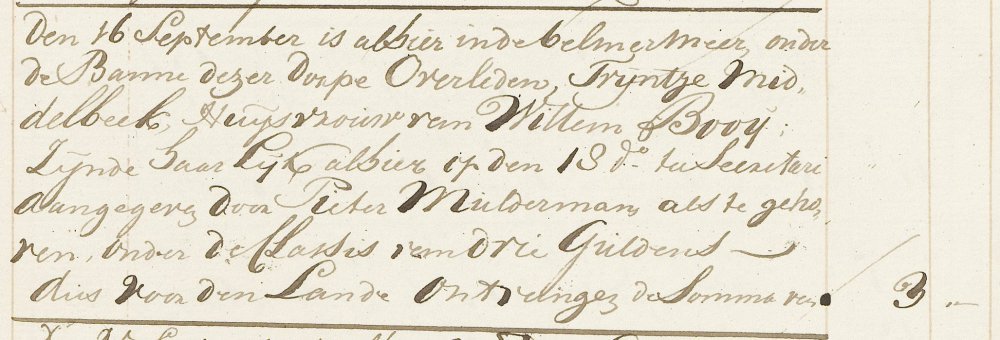 Den 16 September is alhier in de belmermeer, onder
de Banne dezer Dorpe Overleden, Trijntje Mid,
delbeek, Huijsvrouw van Willem Booij;
Zijnde haar Lijk alhier op den 18 do. ter Secretari
aangegeven door Pieter Mulderman, als te geho,
ren, onder de Classis van drie Guldens —
dus voor den Lande Ontvangen de Somma van 3 „ —